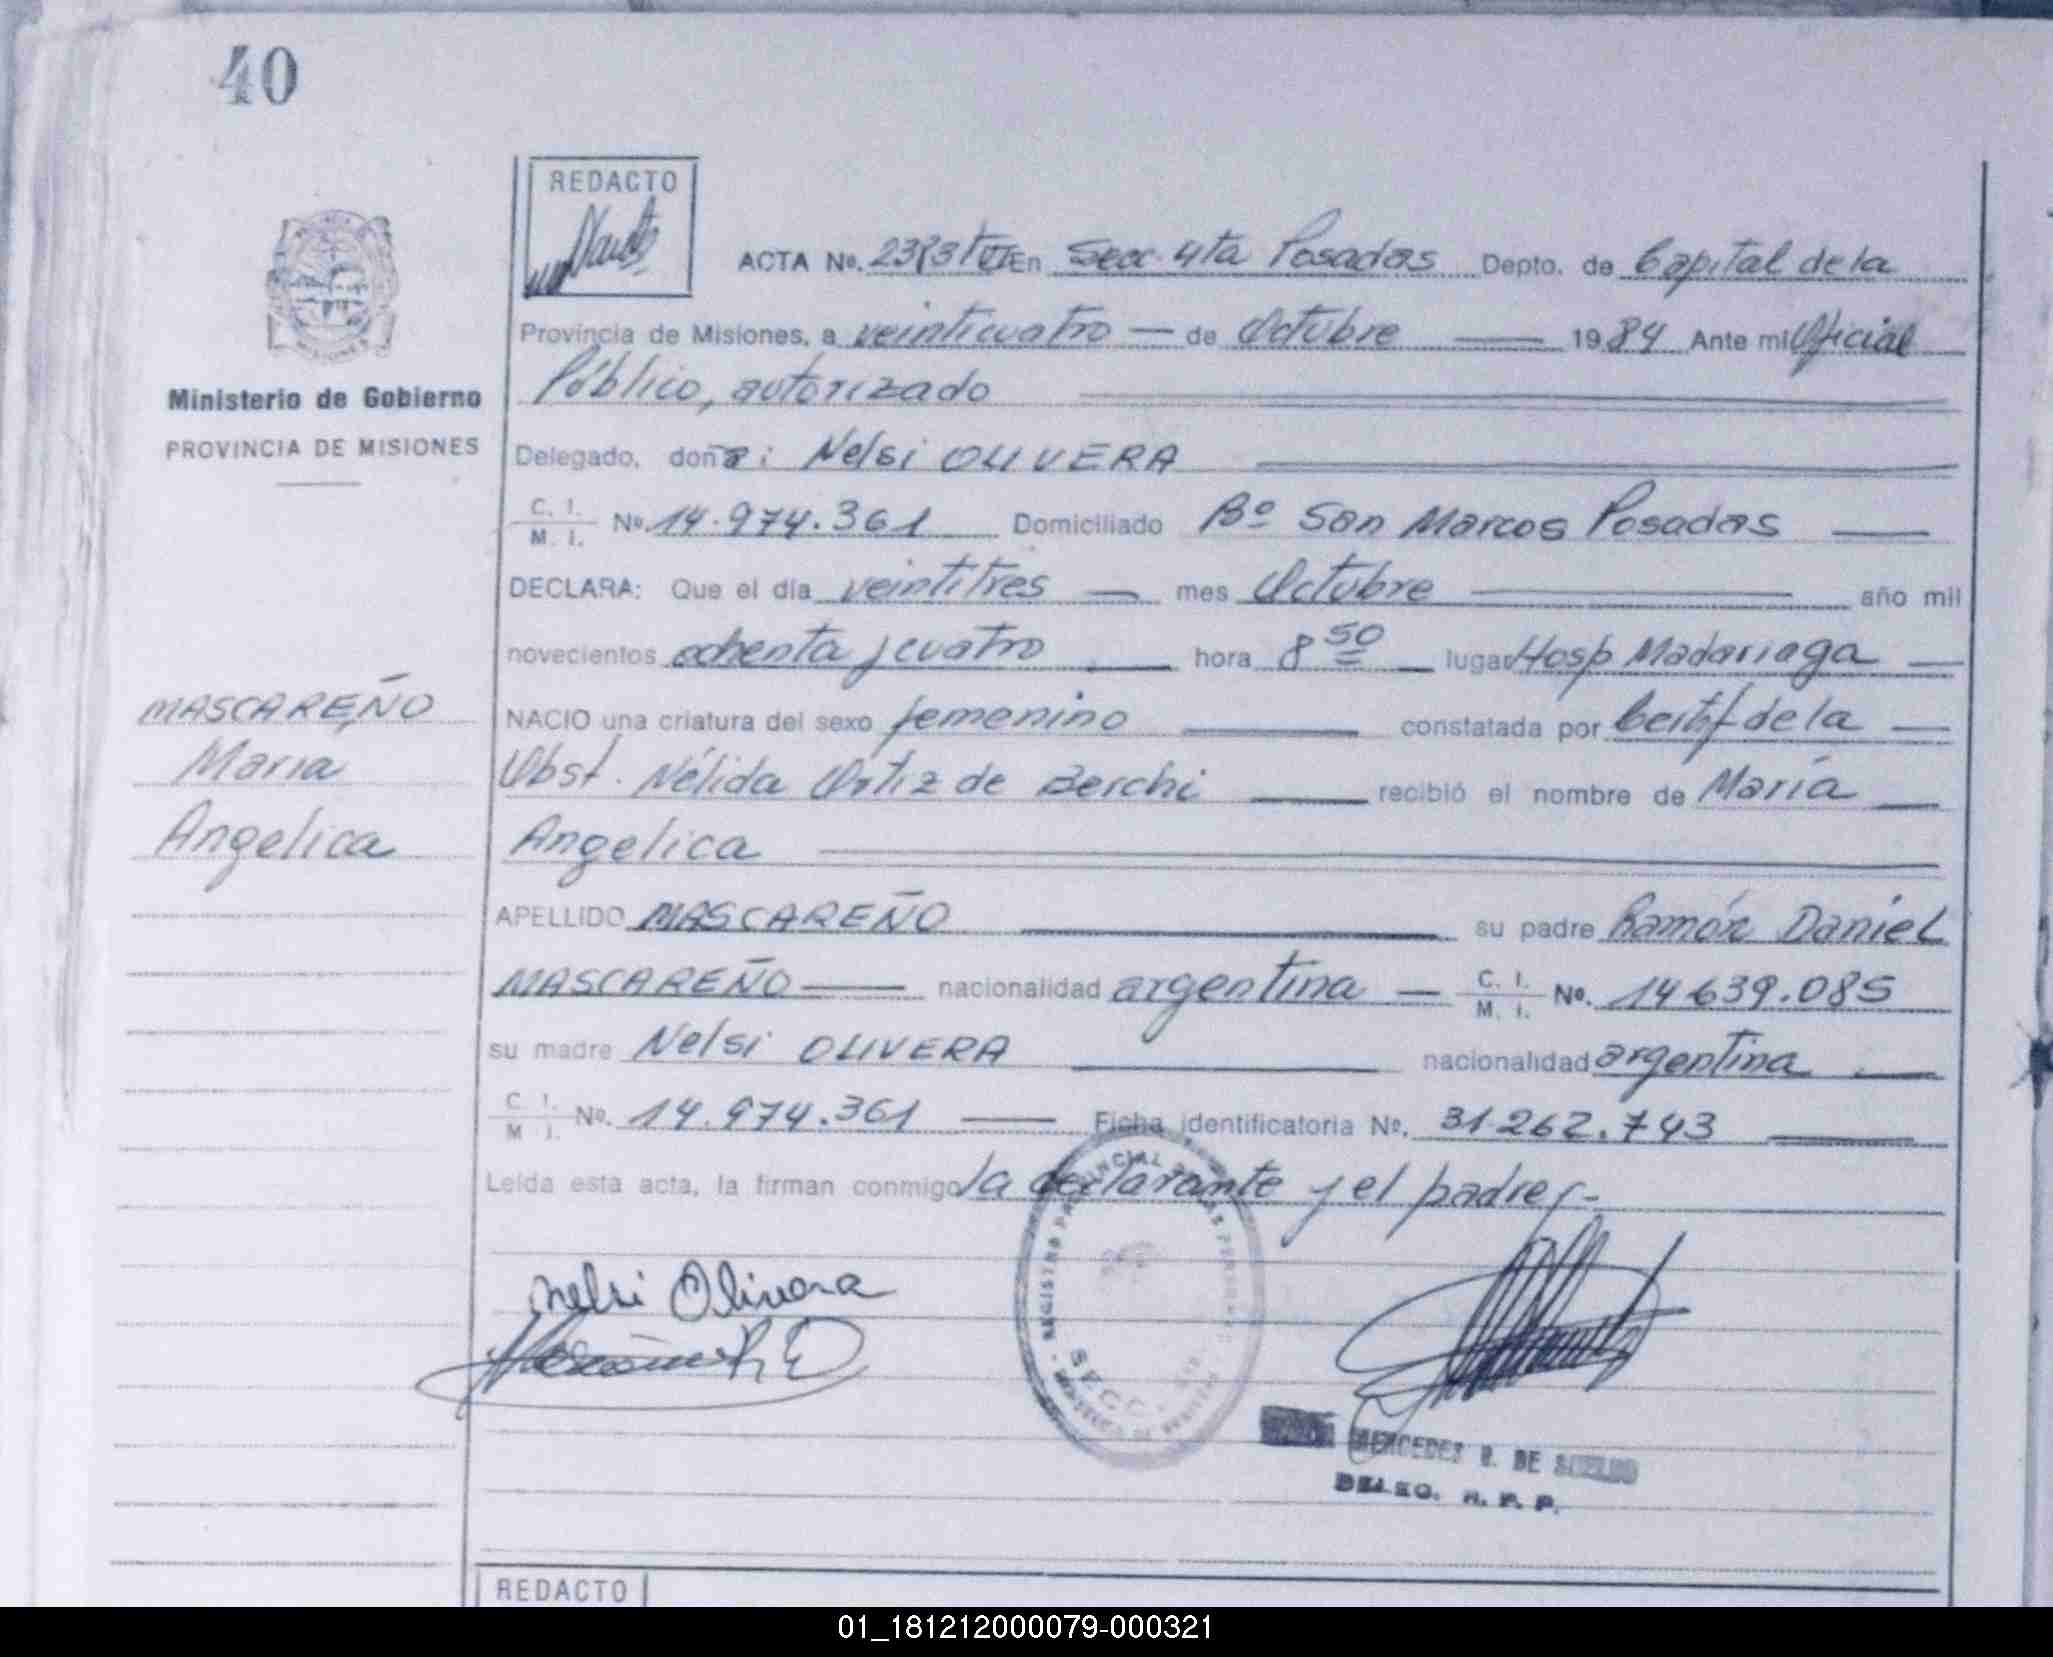 40
REDACTO
ACTA No. En Secc. 4ta Posadas Depto. de Capital de la
Provincia de Misiones, a veinticuatro — de Octubre 1984 Ante mi Oficial
Público, autorizado
Ministerio de Gobierno
PROVINCIA DE MISIONES
Delegado, doña: Nelsi OLIVERA
C. I. M. I. No. 14.974.361 Domiciliado Bº San Marcos Posadas
DECLARA: Que el día veintitres — mes Octubre año mil
novecientos ochenta y cuatro hora 8 50 lugar Hosp Madariaga
MASCAREÑO
María
Angelica
NACIO una criatura del sexo femenino constatada por Certif de la
Obst. Nélida Ortiz de Berchi recibió el nombre de María
Angelica
APELLIDO MASCAREÑO su padre Ramón Daniel
MASCAREÑO nacionalidad argentina — C. I. M. I. No. 14.639.085
su madre Nelsi OLIVERA nacionalidad argentina
C. I. M. I. No. 14.974.361 Ficha identificatoria No. 31.262.743
Leída esta acta, la firman conmigo la declarante y el padre.-
REGISTRO PROVINCIAL DE LAS PERSONAS
SECC.
Nelsi Olivera
MERCEDES R. DE
DELEG. R. P. P.
REDACTO
01_181212000079-000321